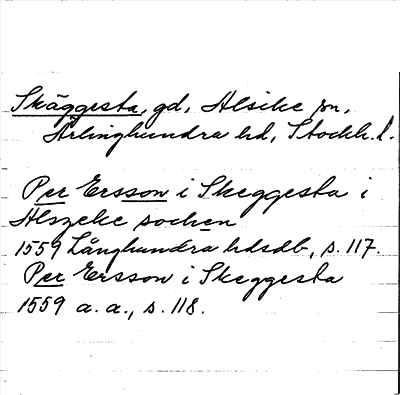 Skäggesta, gd, Alsike sn,
Ärlinghundra hd, Stockh. l.
Per Ersson i Skeggesta i
Alszeke sochen
1559 Långhundra hdsdb, s. 117.
Per Ersson i Skeggesta
1559 a. a., s. 118.